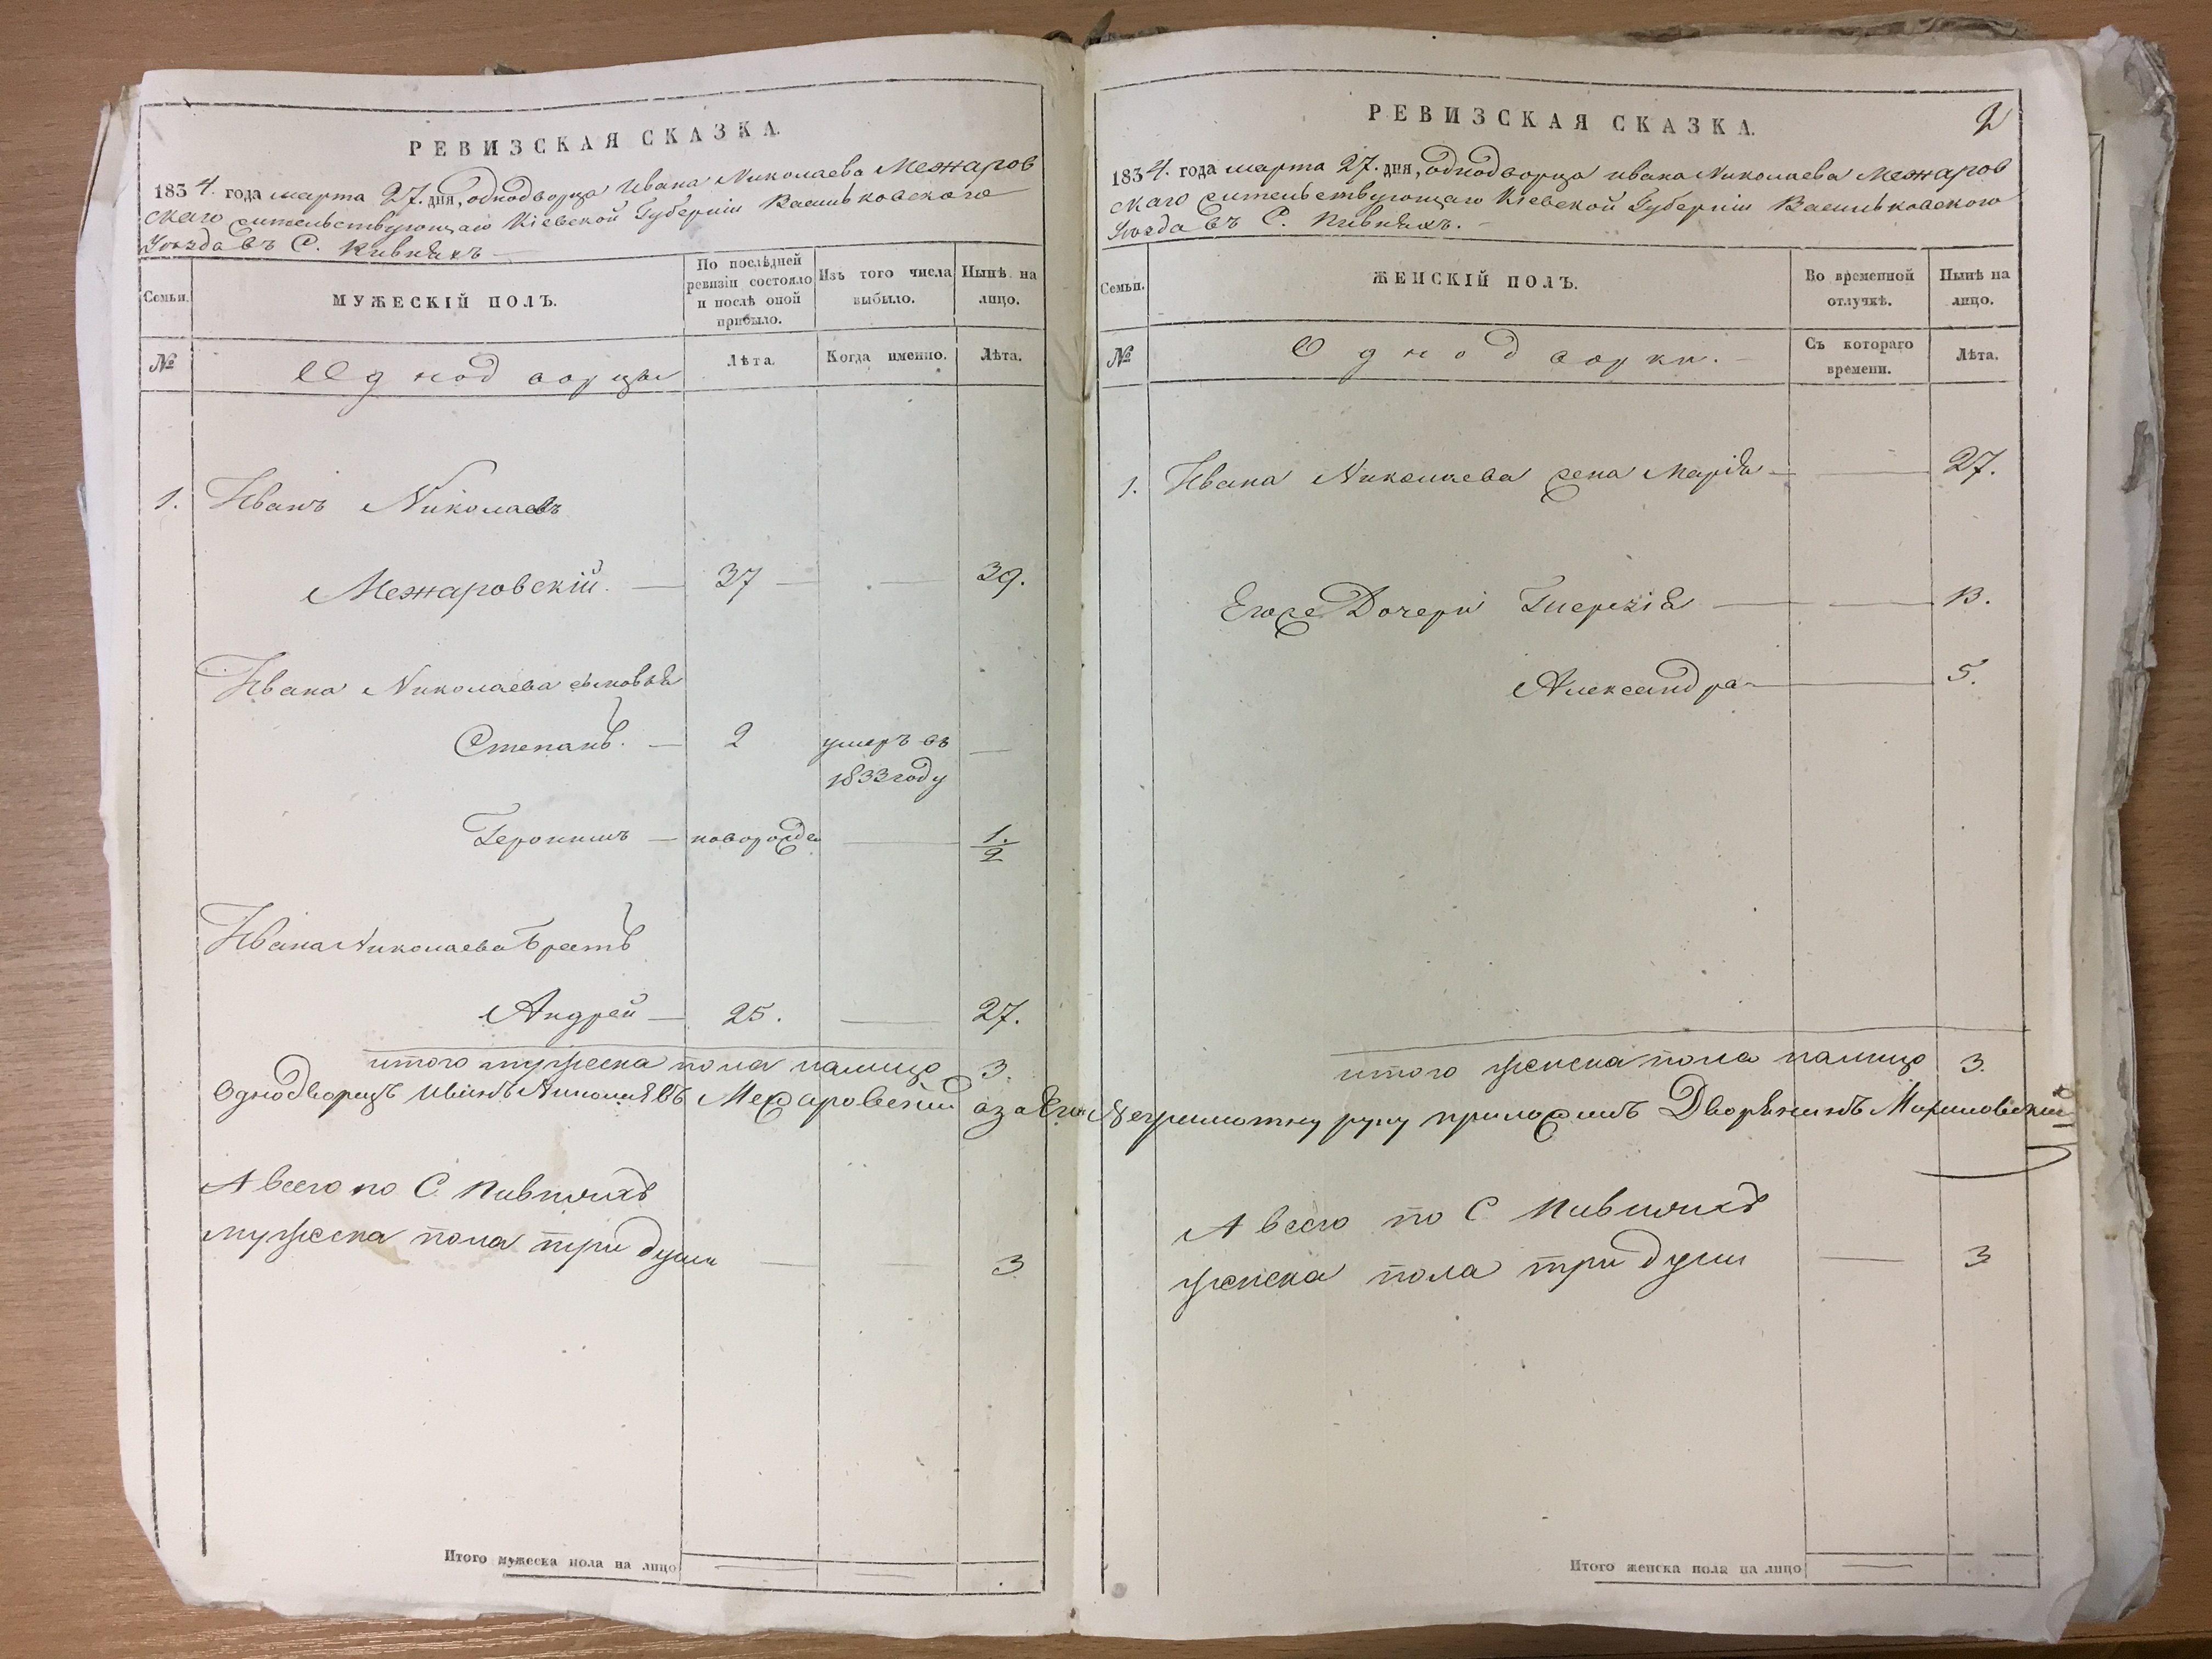 РЕВИЗСКАЯ СКАЗКА.
1834. года марта 27. дня, однодворца Ивана Николаева Межаров
скаго жительствующаго Кіевской Губерніи Васильковского
Уезда въ С. Пивняхъ
Семьи.
МУЖЕСКІЙ ПОЛЪ.
По послѣдней
ревизіи состояло
и послѣ оной
прибыло.
Изъ того числа
выбыло.
Нынѣ на
лицо.
№
Однодворцы
Лѣта.
Когда именно.
Лѣта.
1. Иванъ Николаевъ
Межаровскій. 37 39.
Ивана Николаева сыновья
Степанъ. 2 умеръ въ
1833 году
Геронимъ новорожден 1/2
Ивана Николаева Братъ
Андрей 25. 27.
итого мужеска пола налицо 3.
А всего по С. Пивняхъ
мужеска пола три души 3.
Итого мужеска пола на лицо
РЕВИЗСКАЯ СКАЗКА.
2
1834. года марта 27. дня, однодворца ивана Николаева Межаров
скаго жительствующаго Кіевской Губерніи Васильковского
Уезда въ С. Пивняхъ.
Семьи.
ЖЕНСКІЙ ПОЛЪ.
Во временной
отлучкѣ.
Нынѣ на
лицо.
№
Однодворки.
Съ котораго
времени.
Лѣта.
1. Ивана Николаева жена Марія 27.
Егоже Дочери Тиерезія 13.
Александра 5.
итого женска пола налицо 3.
Однодворецъ Иванъ Николаевъ Межаровский а за Его Неграмотну руку приложилъ Дворянинъ
А всего по С Пивняхъ
женска пола три души 3
Итого женска пола на лицо